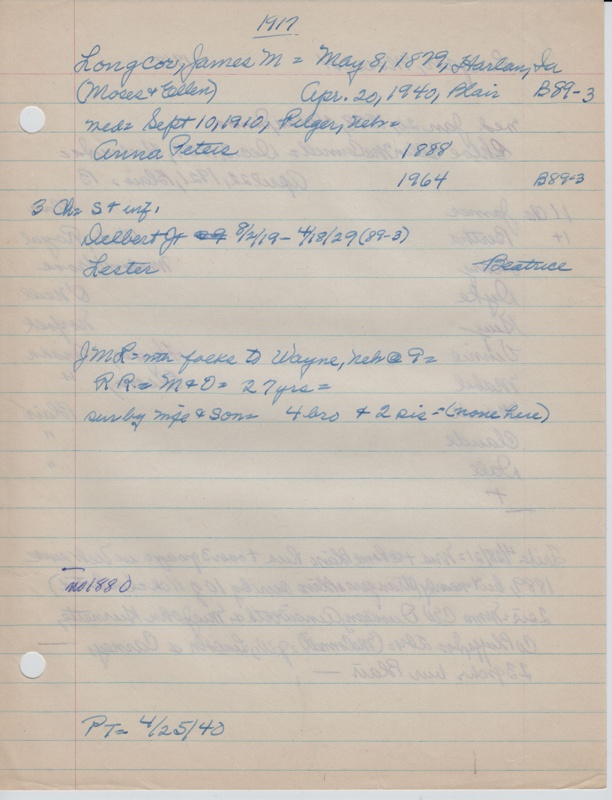 1917
Longcor, James M = May 8, 1879, Harlan, Ia
(Moses & Ellen) Apr. 20, 1940, Blair B89-3
med = Sept 10, 1910, Pilger, Neb =
Anna Peters 1888
1964 B89-3
3 Ch = S + inf.
Delbert J+ 8/2/19 - 4/18/29 (89-3)
Lester Beatrice
J M L = folks to Wayne, Neb @ 9 =
R R = M & O = 27 yrs =
sur by wife & son = 4 bro & 2 sis = (none here)
no 1880
PT = 4/25/40